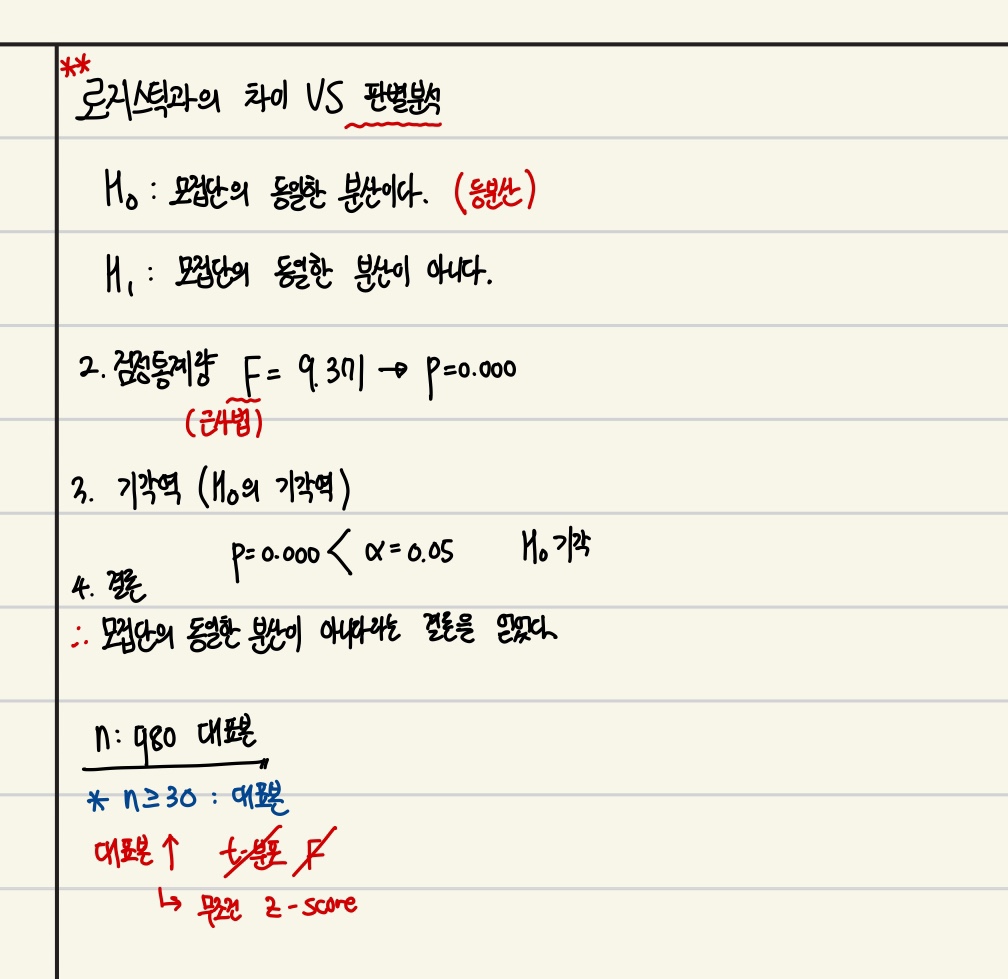 ** 로지스틱과의 차이 VS 판별분석
H₀ : 모집단의 동일한 분산이다. (등분산)
H₁ : 모집단의 동일한 분산이 아니다.
2. 검정통계량 F = 9.371 → p=0.000
(근사법)
3. 기각역 (H₀의 기각역)
p=0.000 < α=0.05 H₀ 기각
4. 결론
∴ 모집단의 동일한 분산이 아니다라는 결론을 얻었다.
n: 980 대표본
* n≥30 : 대표본
대표본↑ t-분포 F
↳ 무조건 z-score